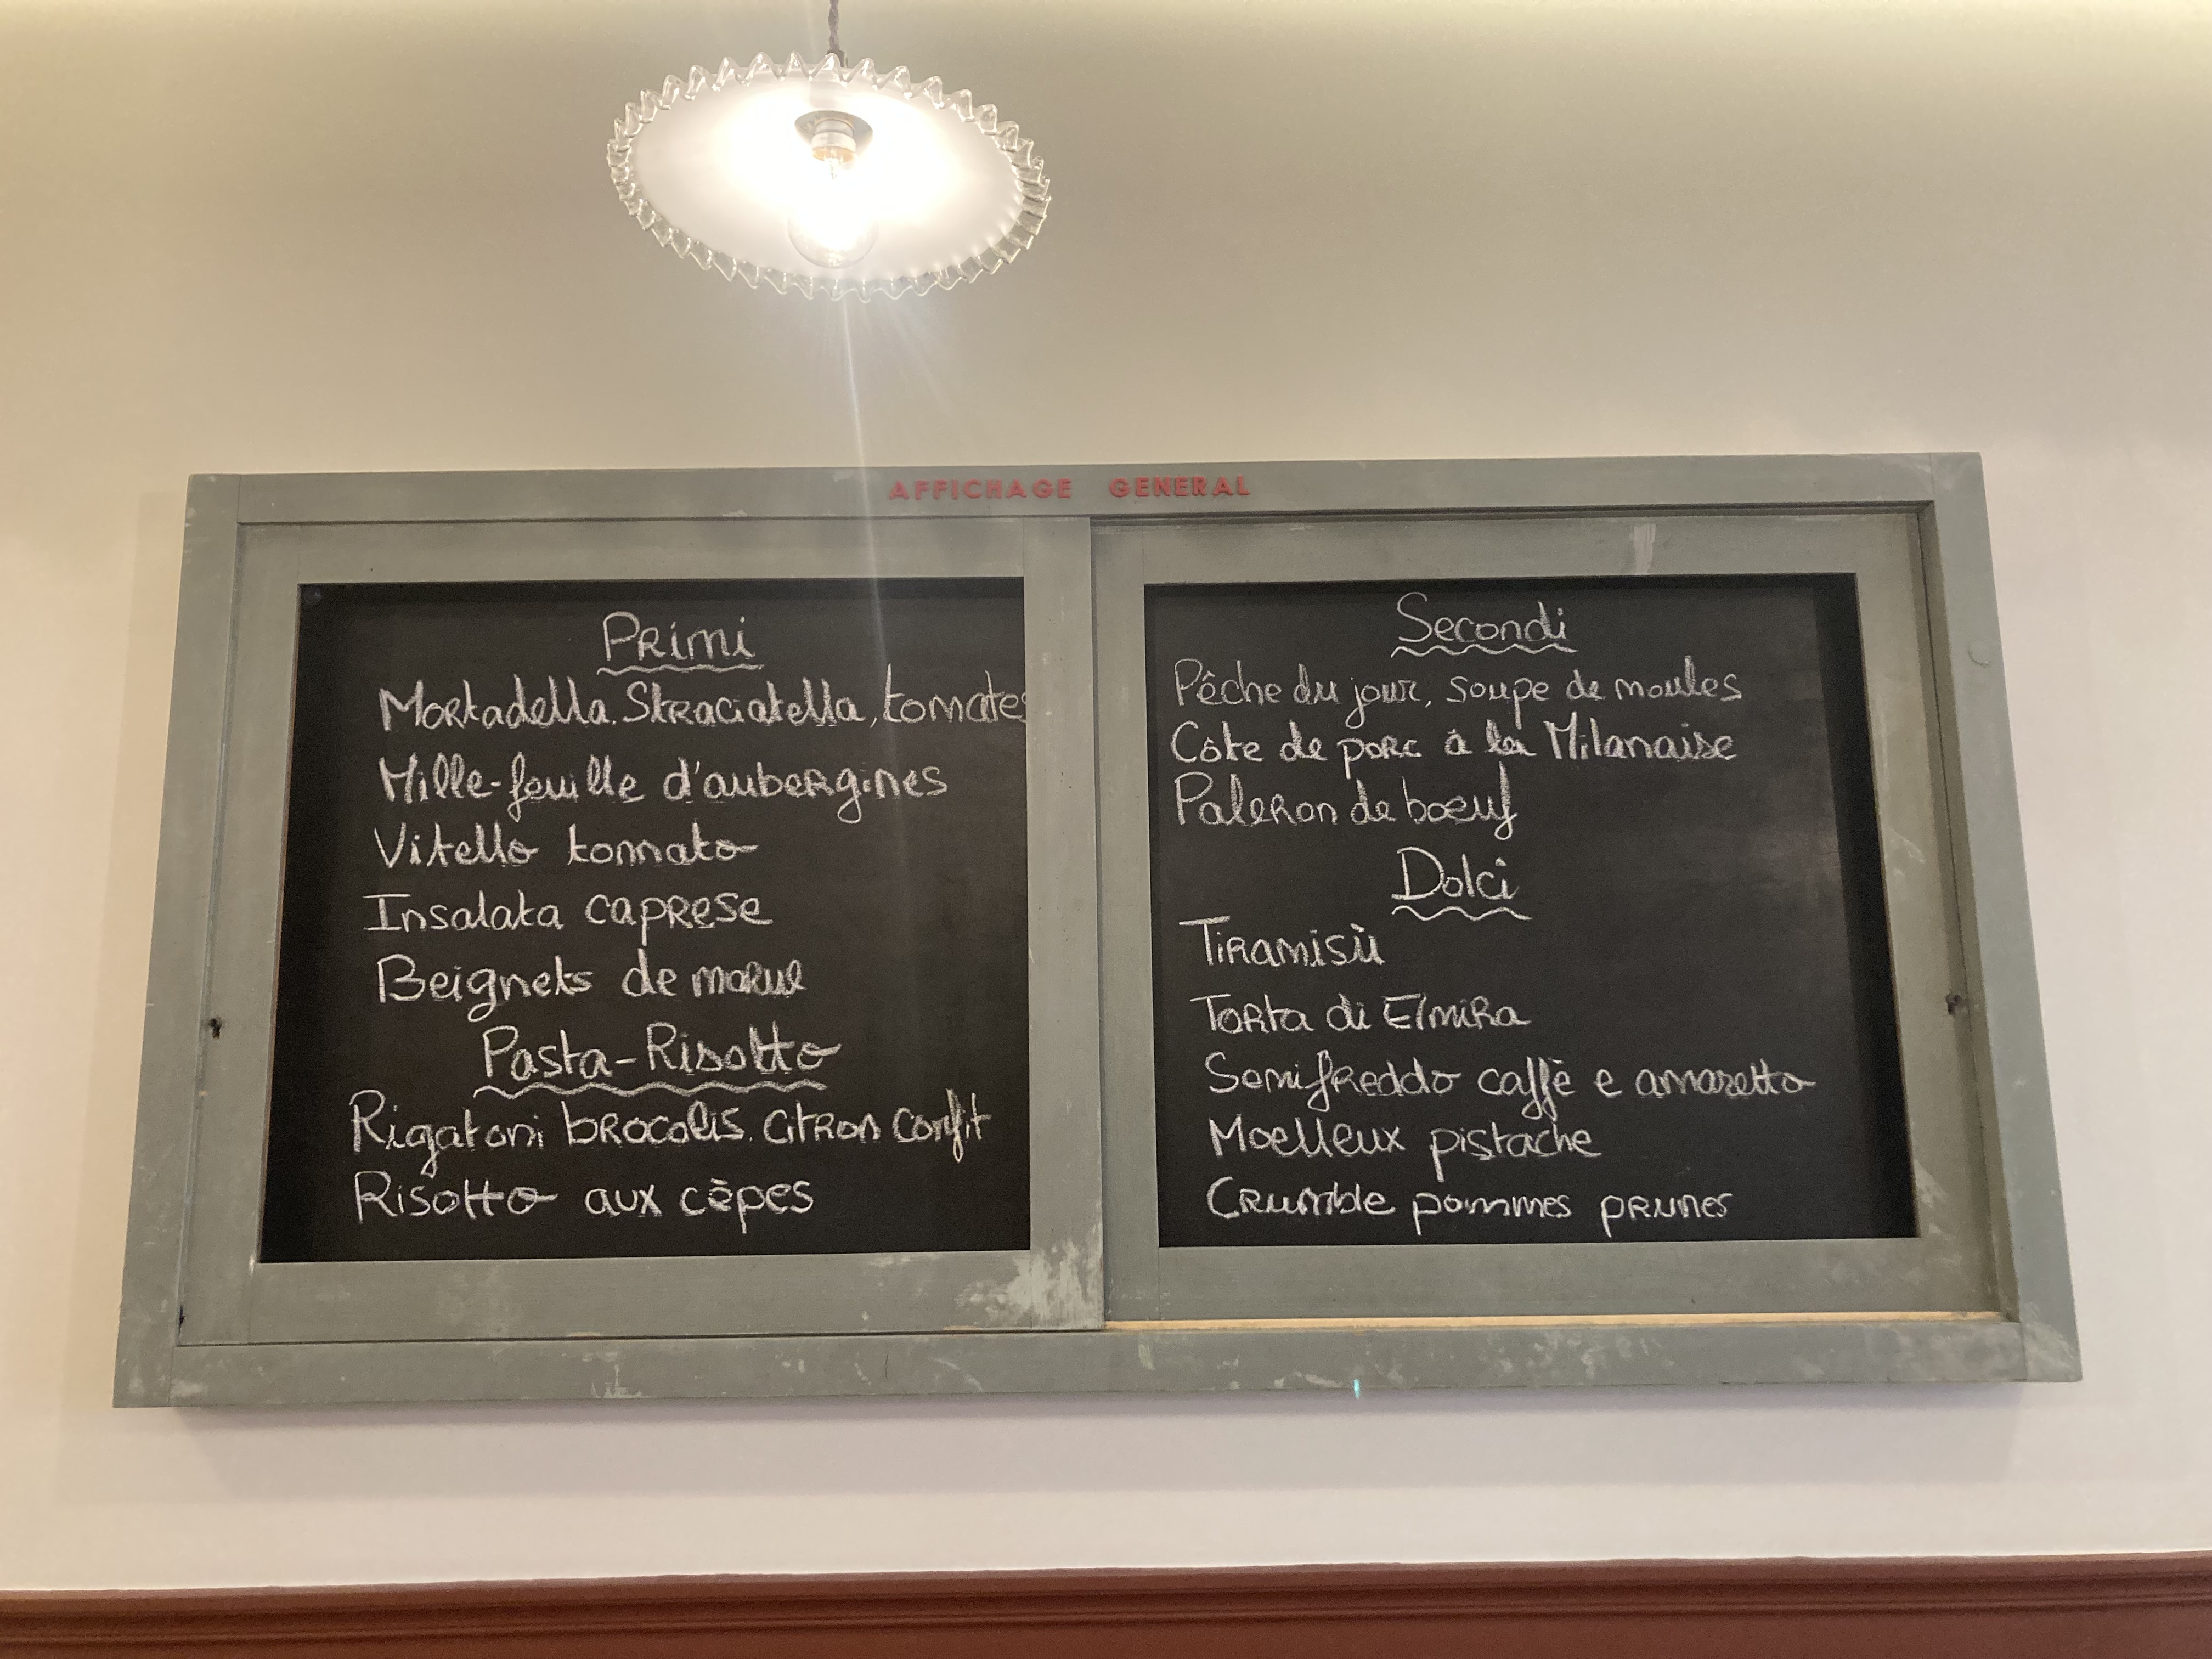 AFFICHAGE GENERAL
Primi
Mortadella. Straciatella, tomates
Mille-feuille d'aubergines
Vitello tonnato
Insalata caprese
Beignets de morue
Pasta-Risotto
Rigatoni brocolis. Citron confit
Risotto aux cèpes
Secondi
Pêche du jour, soupe de moules
Côte de porc à la Milanaise
Paleron de boeuf
Dolci
Tiramisù
Torta di Elmira
Semifreddo caffè e amaretto
Moelleux pistache
Crumble pommes prunes